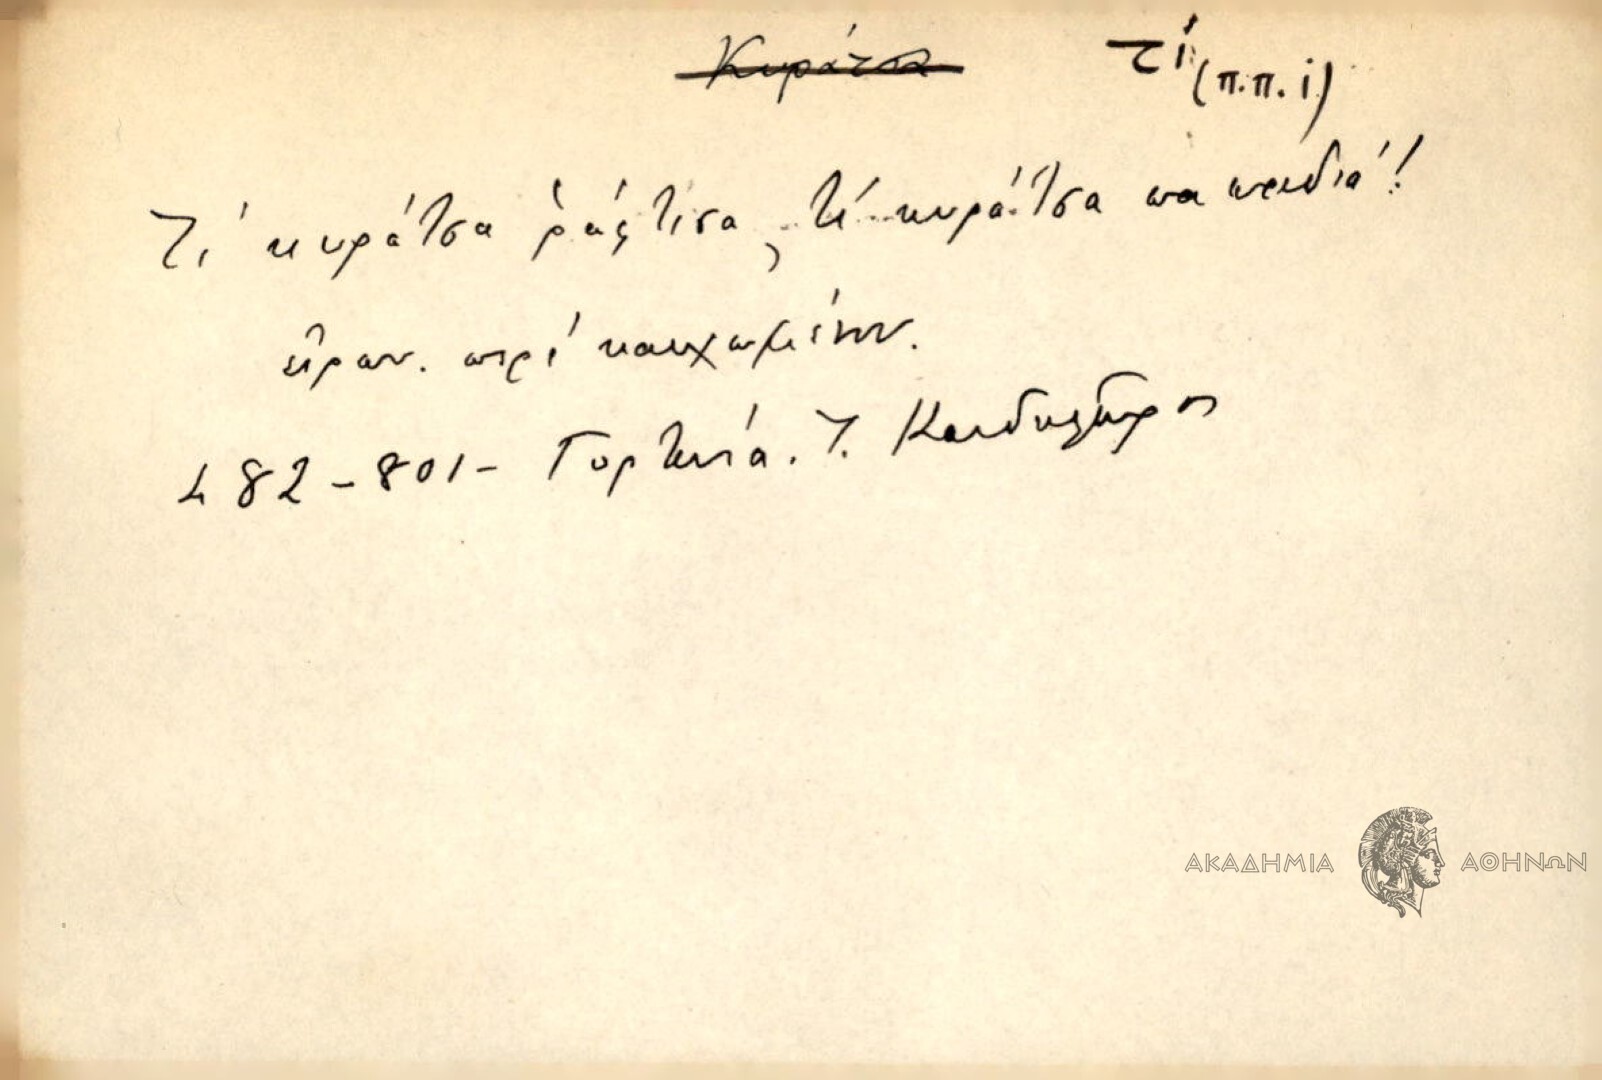 Κυράτσα
τί (π.π. i)
Τί κυράτσα ράφτισα, τί κυράτσα παπαδιά!
εἰρων. περί καυχωμένων.
Λ 482-801- Γορτυνία. Τ. Κανδηλῶρος
ΑΚΑΔΗΜΙΑ ΑΘΗΝΩΝ